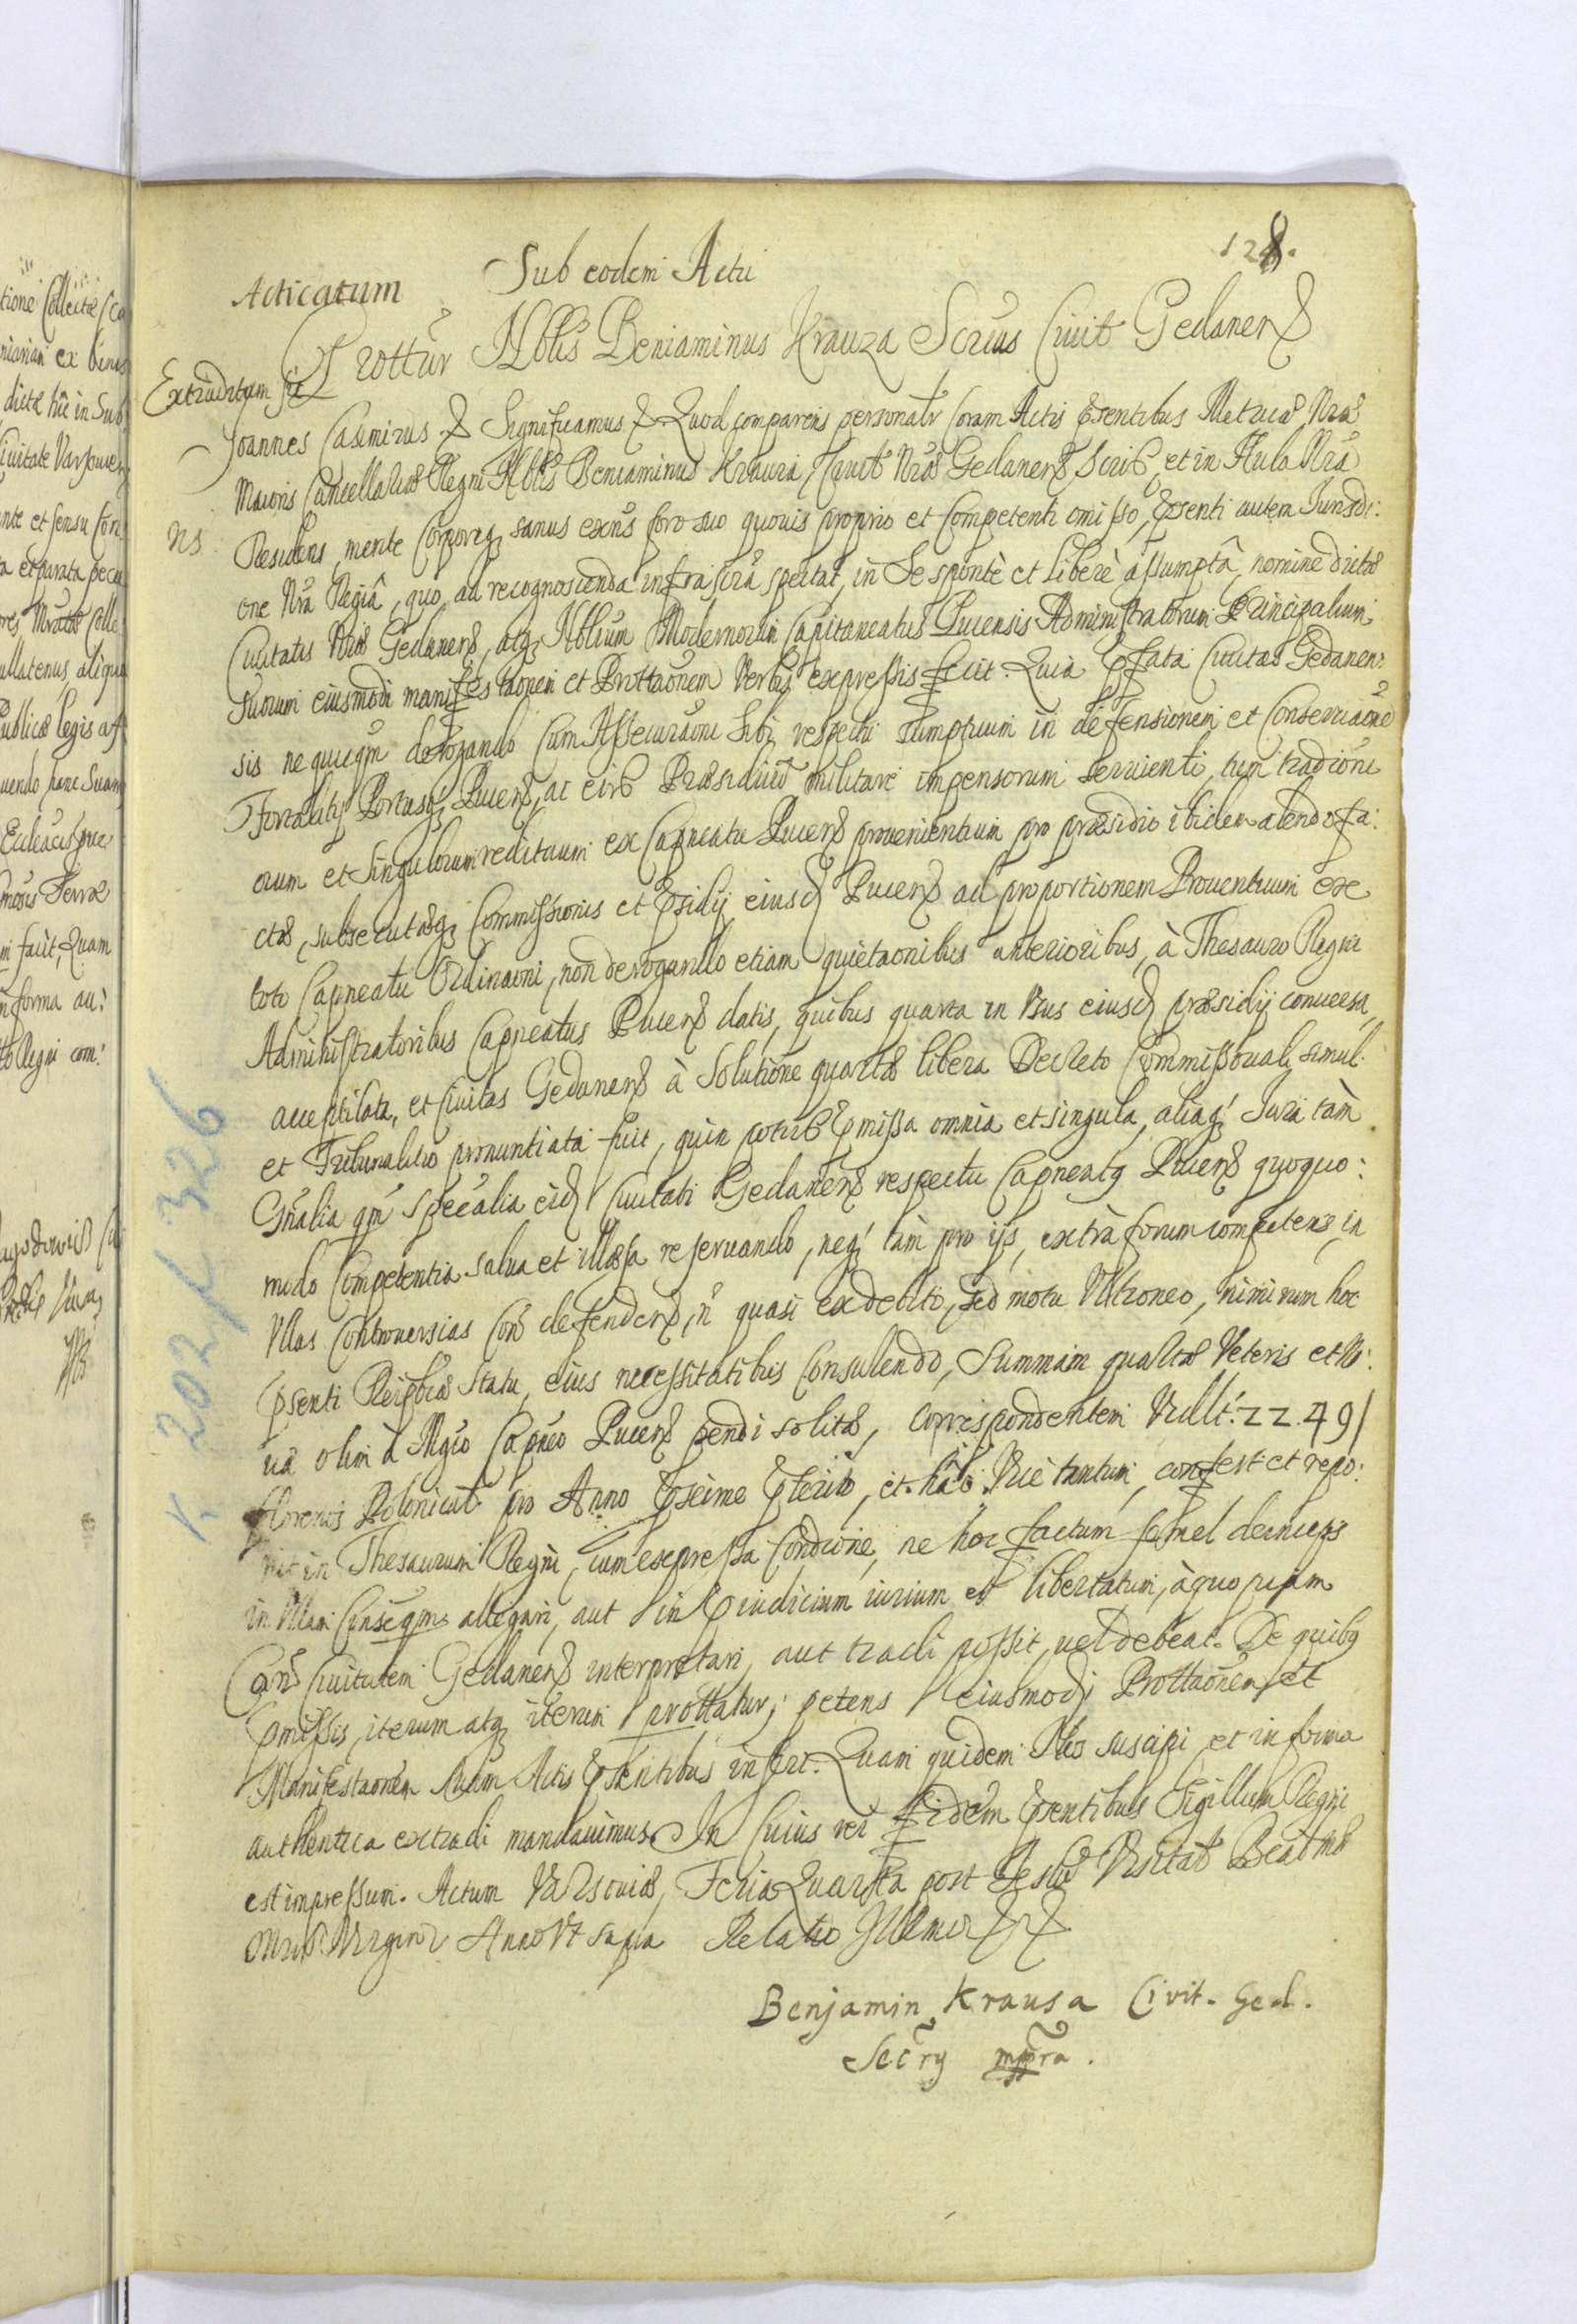 128.
Sub eodem Actu
Acticatum
Prottur Nblis Beniaminus Krauza Scrius Civit Gedanen
Extraditum fit
Joannes Casimirus & Significamus & Quod comparens personalr coram Actis pñsentibus Metricæ Nræ
Maioris Cancellariæ Regni Nblis Beniaminus Krauza Civit Nræ Gedanen Scrib, et in Aula Nra
NS
Residens, mente corporeq sanus exens foro suo quovis proprio et competenti omisso, pñsenti autem Jurisdi:
one Nra Regiâ, quo ad recognoscenda infrascra spectat, in Se spontè et liberè assumptâ, nomine dictæ
Civitatis Nræ Gedanen, atq Nblium Modernorum Capitaneatus Pucensis Administratorum Principalium
suorum eiusmodi manifestaonem et Prottaonem verbis expressis fecit. Quia pfata Civitas Gedanen:
sis nequicqm derogando cum Assecuraone sibi respectu sumptuum in defensionem et conservaone
Fortalitij Portusq Pucen, ac circ Præsidiū militare impensorum servienti, tum tradione
oium et singulorum redituum ex Capneatu Pucen provenientium pro præsidio ibidem alendo fa:
ctæ, subsecutæq Commissionis et psidij eiusd Pucen ad proportionem Proventuum ex
toto Capneatu Ordinaoni, non derogando etiam quietaonibus anterioribus, à Thesauro Regni
Administratoribus Capneatus Pucen datis, quibus quarta in usus eiusd præsidij conversa,
acceptilata, et Civitas Gedanen à Solutione quartæ libera Decreto Commissoriali simul
et Tribunalitio pronuntiata fuit, quin potius pmissa omnia et singula, aliaq Jura tàm
Gñalia qm specialia eid Civitati Gedanen respectu Capneatq Pucen quoquo:
modo competentia salva et illæsa reservando, neq tàm pro ijs, extrà forum competens in
ullas Controversias con defenden, ñ quasi ex debito, sed motu Ultroneo, nimirum hoc
psenti Reipbcæ Statu, eius necessitatibus consulendo, Summam quartæ Veteris et No:
væ olim à Mgco Capneo Pucen pendi solitæ, correspondentem Vidlt: 22.491
florenos Polonical pro Anno pxime pterito, et hac Vice tantum, confert et repo:
nit in Thesaurum Regni, cum expressa Condione, ne hoc factum semel deinceps
in ullam Conseqm allegari, aut in pindicium iurium et libertatum, à quoquam
Con Civitatem Gedanen interpretari, aut trachi possit, vel debeat. De quibq
pmissis, iterum atq iterum prottatur; petens eiusmodi Prottaonem et
Manifestaonem suam Actis psentibus inseri. Quam quidem Nos suscipi et in forma
authentica extradi mandavimus. In Cuius rei fidem psentibus Sigillum Regni
est impressum. Actum Varsoviæ, Feria Quarta post Festū Visitat Beatmæ
Mriæ Virginis Anno Vt supra Relatio Illmi &&
Benjamin Krausa Civit. Ged.
Secry mppra.
r. 202/f 326